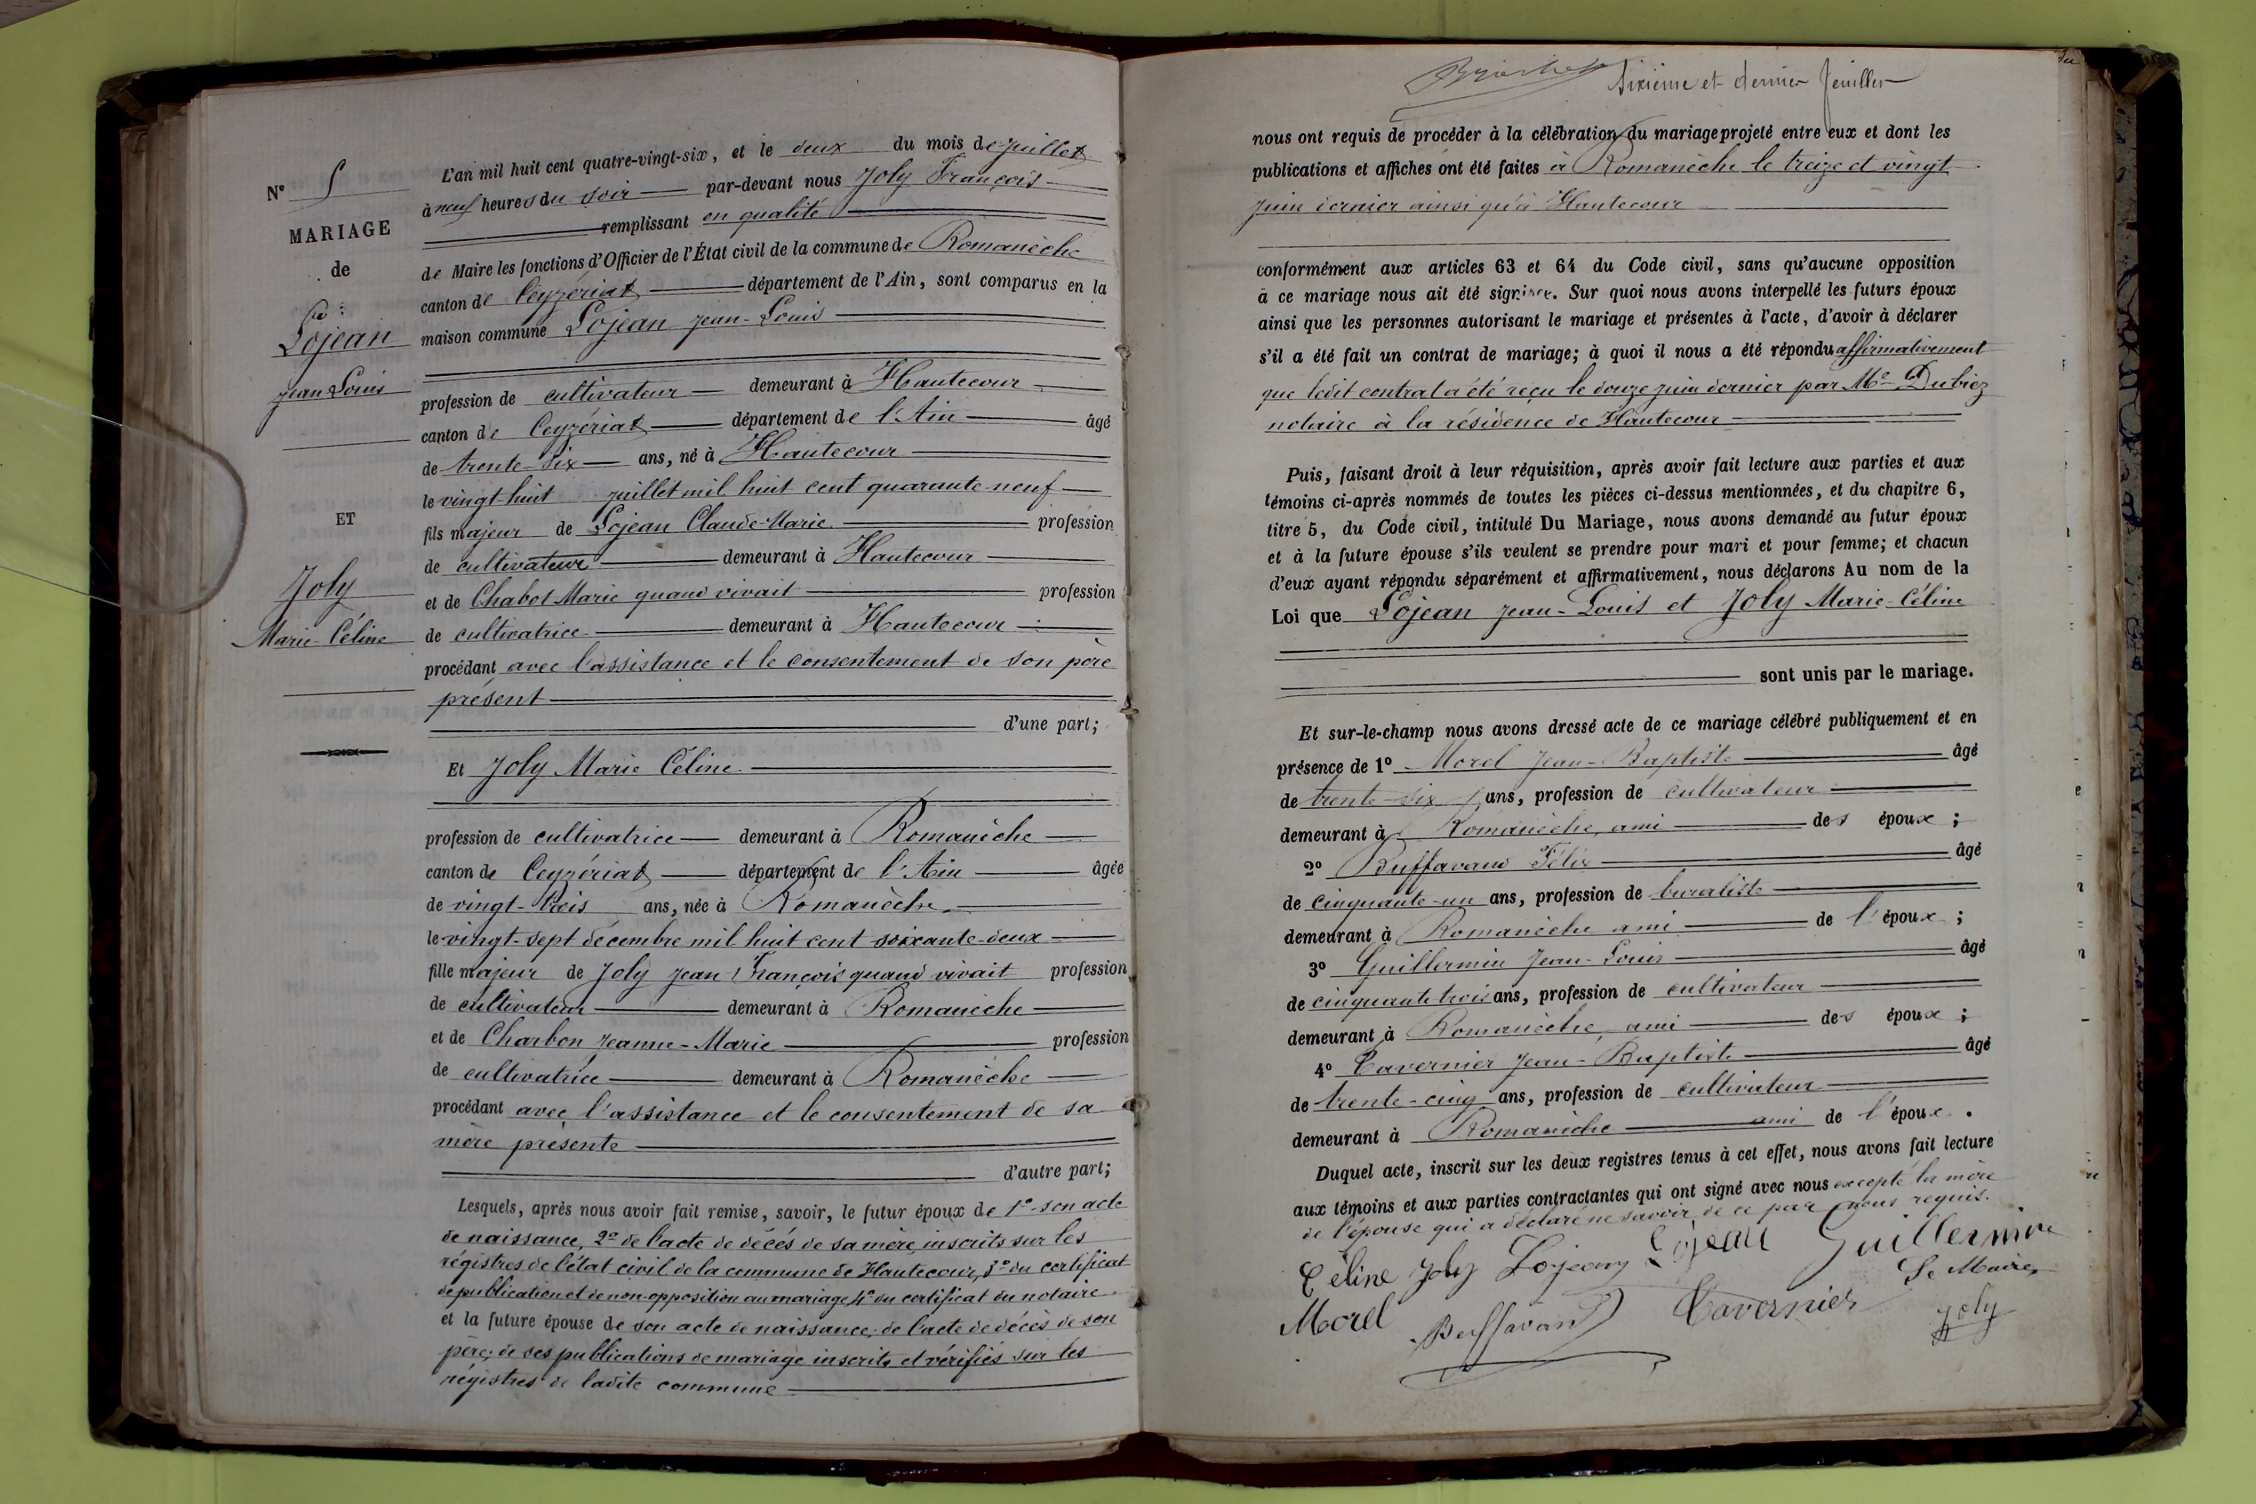 N° 5
MARIAGE
de
Lojean
Jean Louis
ET
Joly
Marie-Céline
L'an mil huit cent quatre-vingt-six, et le deux du mois de juillet
à neuf heures du soir par-devant nous Joly François
remplissant en qualité
de Maire les fonctions d'Officier de l'État civil de la commune de Romanèche
canton de Ceyzériat département de l'Ain, sont comparus en la
maison commune Lojean Jean-Louis
profession de cultivateur demeurant à Hautecour
canton de Ceyzériat département de l'Ain âgé
de trente-six ans, né à Hautecour
le vingt huit juillet mil huit cent quarante-neuf
fils majeur de Lojean Claude-Marie profession
de cultivateur demeurant à Hautecour
et de Chabot Marie quand vivait profession
de cultivatrice demeurant à Hautecour
procédant avec l'assistance et le consentement de son père
présent
d'une part;
Et Joly Marie Céline
profession de cultivatrice demeurant à Romanèche
canton de Ceyzériat département de l'Ain âgée
de vingt-trois ans, née à Romanèche
le vingt-sept décembre mil huit cent soixante-deux
fille majeur de Joly Jean-François quand vivait profession
de cultivateur demeurant à Romanèche
et de Charbon Jeanne-Marie profession
de cultivatrice demeurant à Romanèche
procédant avec l'assistance et le consentement de sa
mère présente
d'autre part;
Lesquels, après nous avoir fait remise, savoir, le futur époux de 1° son acte
de naissance, 2° de l'acte de décès de sa mère, inscrits sur les
régistres de l'état civil de la commune de Hautecour, 3° du certificat
de publication et de non-opposition au mariage, 4° du certificat du notaire
et la future épouse de son acte de naissance; de l'acte de décès de son
père; de ses publications de mariage inscrits et vérifiés sur les
régistres de ladite commune
Sixième et dernier feuillet
nous ont requis de procéder à la célébration du mariage projeté entre eux et dont les
publications et affiches ont été faites à Romanèche le treize et vingt
juin dernier ainsi qu'à Hautecour
conformément aux articles 63 et 64 du Code civil, sans qu'aucune opposition
à ce mariage nous ait été signifiée. Sur quoi nous avons interpellé les futurs époux
ainsi que les personnes autorisant le mariage et présentes à l'acte, d'avoir à déclarer
s'il a été fait un contrat de mariage; à quoi il nous a été répondu affirmativement
que ledit contrat a été reçu le douze juin dernier par Me Dubiez
notaire à la résidence de Hautecour
Puis, faisant droit à leur réquisition, après avoir fait lecture aux parties et aux
témoins ci-après nommés de toutes les pièces ci-dessus mentionnées, et du chapitre 6,
titre 5, du Code civil, intitulé Du Mariage, nous avons demandé au futur époux
et à la future épouse s'ils veulent se prendre pour mari et pour femme; et chacun
d'eux ayant répondu séparément et affirmativement, nous déclarons Au nom de la
Loi que Lojean Jean-Louis et Joly Marie-Céline
sont unis par le mariage.
Et sur-le-champ nous avons dressé acte de ce mariage célébré publiquement et en
présence de 1° Morel Jean-Baptiste âgé
de trente-six ans, profession de cultivateur
demeurant à Romanèche, ami des époux;
2° Buffavand Félix âgé
de cinquante-un ans, profession de buraliste
demeurant à Romanèche ami de l'époux;
3° Guillermin Jean-Louis âgé
de cinquante trois ans, profession de cultivateur
demeurant à Romanèche, ami des époux;
4° Tavernier Jean-Baptiste âgé
de trente-cinq ans, profession de cultivateur
demeurant à Romanèche ami de l'époux.
Duquel acte, inscrit sur les deux registres tenus à cet effet, nous avons fait lecture
aux témoins et aux parties contractantes qui ont signé avec nous excepté la mère
de l'épouse qui a déclaré ne savoir de ce par nous requis.
Céline Joly Lojean Lojean Guillermin
Le Maire,
Morel Buffavand Tavernier Joly